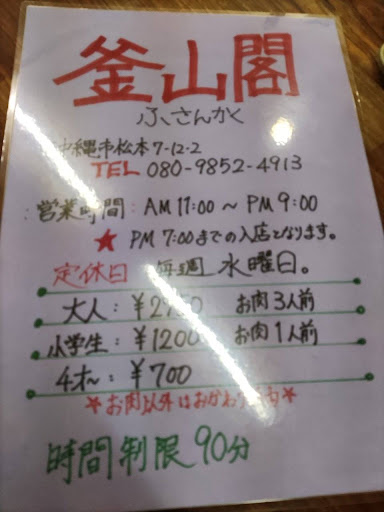 釜山閣
ふさんかく
沖縄市松本7-12-2
TEL 080-9852-4913
営業時間: AM 11:00 〜 PM 9:00
★ PM 7:00までの入店となります。
定休日 毎週 水曜日。
大人: ¥2950 お肉3人前
小学生: ¥1200 お肉1人前
4才〜: ¥700
*お肉以外はおかわり *
時間制限 90分